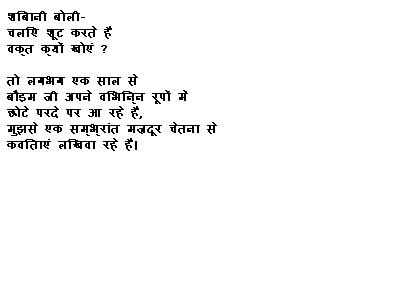 शिबानी बोली-
चलिए शूट करते हैं
वक्त क्यों खोएं ?
तो लगभग एक साल से
बौड़म जी अपने विभिन्न रूपों में
छोटे परदे पर आ रहे हैं,
मुझसे एक सम्भ्रांत मज़दूर चेतना से
कविताएं लिखवा रहे हैं।